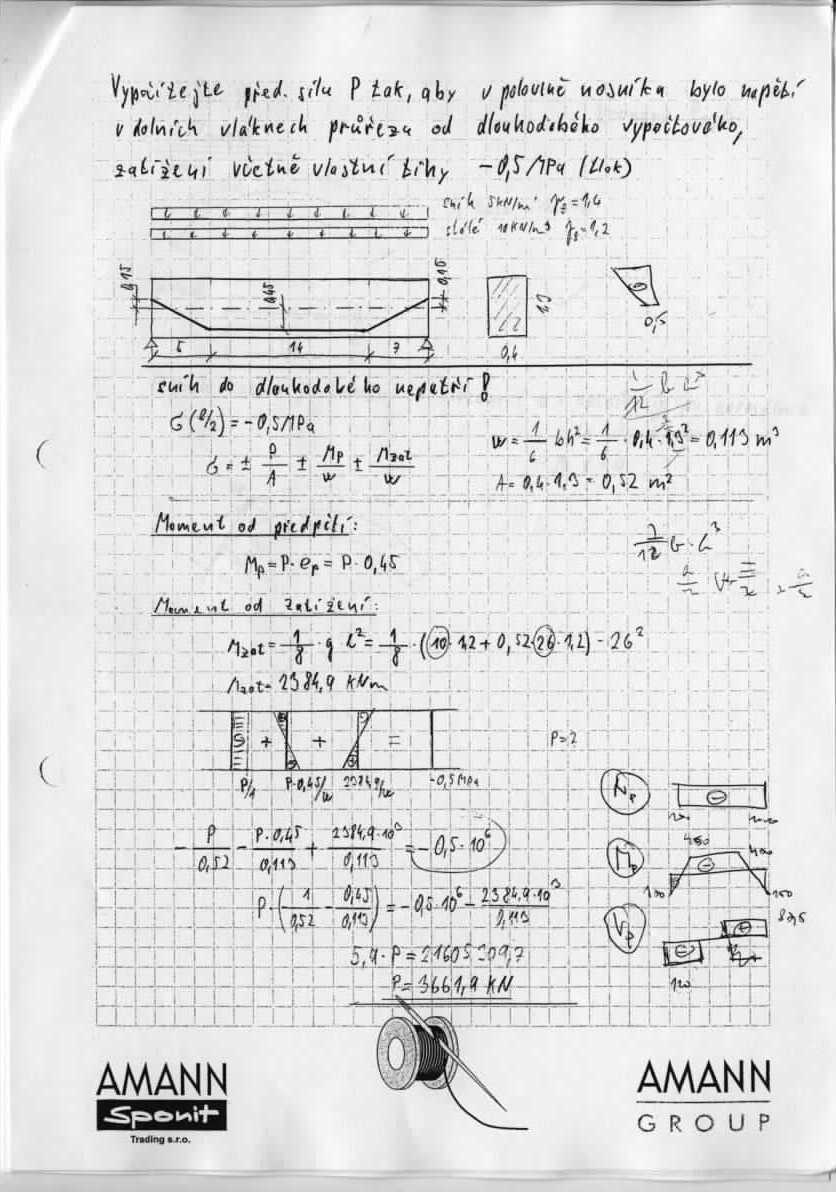 Vypočítejte před. sílu P tak, aby v polovině nosníku bylo napětí
v dolních vláknech průřezu od dlouhodobého výpočtového,
zatížení včetně vlastní tíhy -0,5 MPa (tlak)
sníh 5kN/m' γg=1,4
stálé 10kN/m γg=1,2
0,15 0,45 0,15
1,3
0,5
5 14 7 0,4
sníh do dlouhodobého nepatří!
1/12 b h³
σ(l/2) = -0,5MPa
w = 1/6 bh² = 1/6 · 0,4 · 1,3² = 0,113 m³
σ = ± P/A ± Mp/w ± Mzat/w
A = 0,4 · 1,3 = 0,52 m²
Moment od předpětí:
1/12 b · h³
Mp = P · ep = P · 0,45
Moment od zatížení:
Mzat = 1/8 · g l² = 1/8 · (10 · 1,2 + 0,52 · 26 · 1,2) · 26²
Mzat = 2384,9 kNm
+ + =
P=?
P/A P·0,45/w 2384,9/w -0,5MPa
Np
- P/0,52 - P·0,45/0,113 + 2384,9·10³/0,113 = -0,5·10⁶
Mp
450 400
100 150
P·(-1/0,52 - 0,45/0,113) = -0,5·10⁶ - 2384,9·10³/0,113
Vp
5,9 · P = 21605309,7
120
P = 3661,9 kN
AMANN
Sponit
Trading s.r.o.
AMANN
GROUP